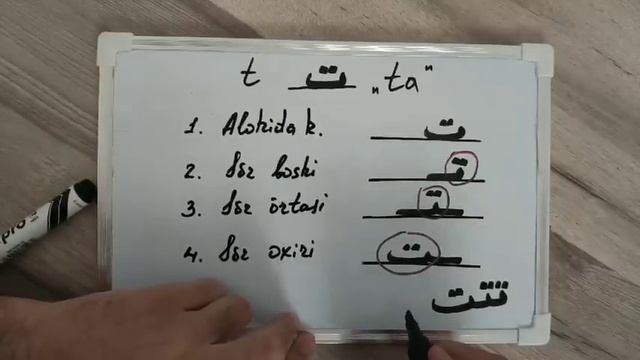 t ت „ta"
1. Alohida k. ت
2. Söz boshi تـ
3. Söz örtasi ـتـ
4. Söz oxiri ـت
تتت
pro